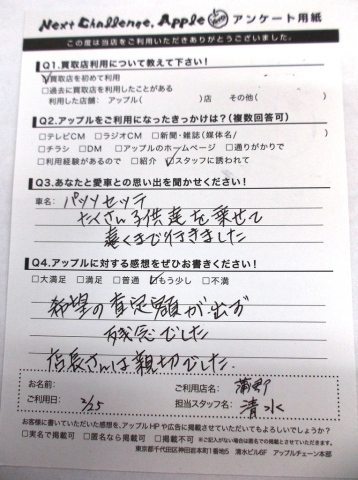 Next Challenge. Apple アンケート用紙
この度は当店をご利用いただきありがとうございました。
Q1.買取店利用について教えて下さい!
☑買取店を初めて利用
□過去に買取店を利用したことがある
利用した店舗: アップル( )店 その他( )
Q2.アップルをご利用になったきっかけは?(複数回答可)
□テレビCM □ラジオCM □新聞・雑誌(媒体名/ )
□チラシ □DM □アップルのホームページ □通りがかりで
□利用経験があるので □紹介 ☑スタッフに誘われて
Q3.あなたと愛車との思い出を聞かせください!
車名: パッソセッテ
たくさん子供達を乗せて
遠くまで行きました
Q4.アップルに対する感想をぜひお書きください!
□大満足 □満足 □普通 ☑もう少し □不満
希望の査定額が出ず
残念でした
店長さんは親切でした.
お名前: ご利用店名: 蒲郡
ご利用日: 2/25 担当スタッフ名: 清水
お客様に書いていただいた感想を、アップルHPや広告に掲載させていただいてもよろしいでしょうか?
□実名で掲載可 □匿名なら掲載可 □掲載不可 ※ご記入がない場合は匿名での掲載とさせていただきます。
東京都千代田区神田岩本町1番地5 清水ビル6F アップルチェーン本部